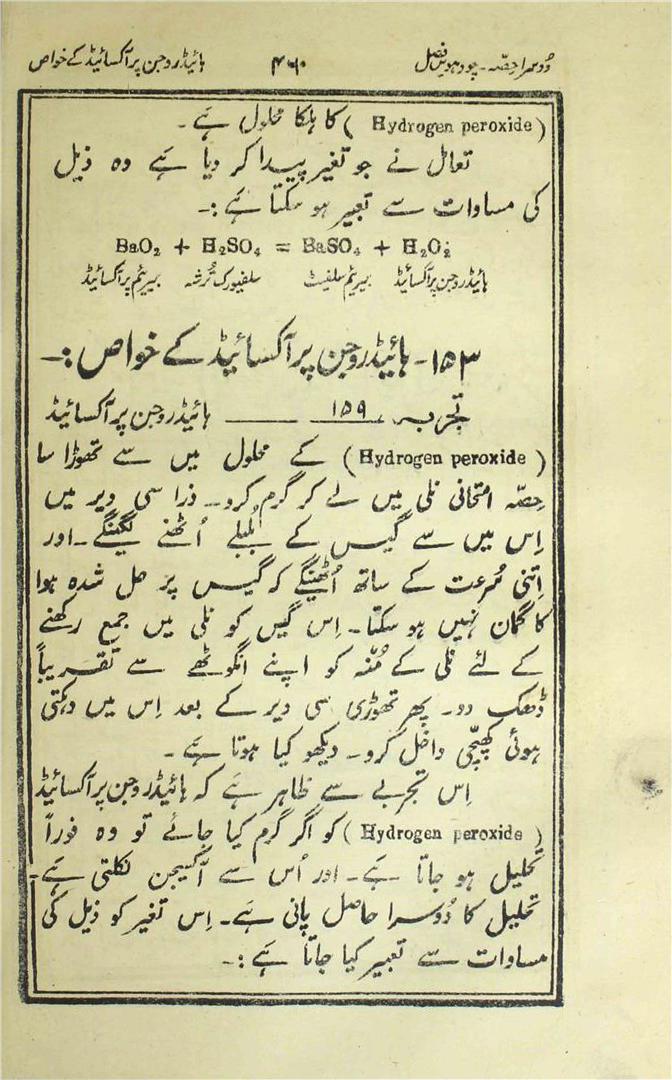 دوسرا حصّہ ۔ چودہویں فصل ۴۶۰ ہائیڈروجن پرآکسائیڈ کے خواص
(Hydrogen peroxide) کا ہلکا محلول ہے ۔
تعامل نے جو تغیر پیدا کر دیا ہے وہ ذیل
کی مساوات سے تعبیر ہو سکتا ہے :۔
BaO₂ + H₂SO₄ = BaSO₄ + H₂O₂
ہائیڈروجن پرآکسائیڈ بیریئم سلفیٹ سلفیورک ترشہ بیریئم پرآکسائیڈ
۱۵۳۔ ہائیڈروجن پرآکسائیڈ کے خواص :۔
تجربہ ۱۵۹ ــــــ ہائیڈروجن پرآکسائیڈ
(Hydrogen peroxide) کے محلول میں سے تھوڑا سا
حصّہ امتحانی نلی میں لے کر گرم کرو۔ ذرا سی دیر میں
اِس میں سے گیس کے بُلبلے اُٹھنے لگینگے۔ اور
اِتنی سُرعت کے ساتھ اُٹھینگے کہ گیس پر حل شدہ ہوا
کا گمان نہیں ہو سکتا۔ اِس گیس کو نلی میں جمع رکھنے
کے لئے نلی کے مُنّہ کو اپنے انگوٹھے سے تقریباً
ڈھک دو۔ پھر تھوڑی سی دیر کے بعد اِس میں دہکتی
ہوئی کھپچّی داخل کرو۔ دیکھو کیا ہوتا ہے ۔
اِس تجربے سے ظاہر ہے کہ ہائیڈروجن پرآکسائیڈ
(Hydrogen peroxide) کو اگر گرم کیا جائے تو وہ فوراً
تحلیل ہو جاتا ہے۔ اور اُس سے آکسیجن نکلتی ہے۔
تحلیل کا دُوسرا حاصل پانی ہے۔ اِس تغیر کو ذیل کی
مساوات سے تعبیر کیا جاتا ہے :۔